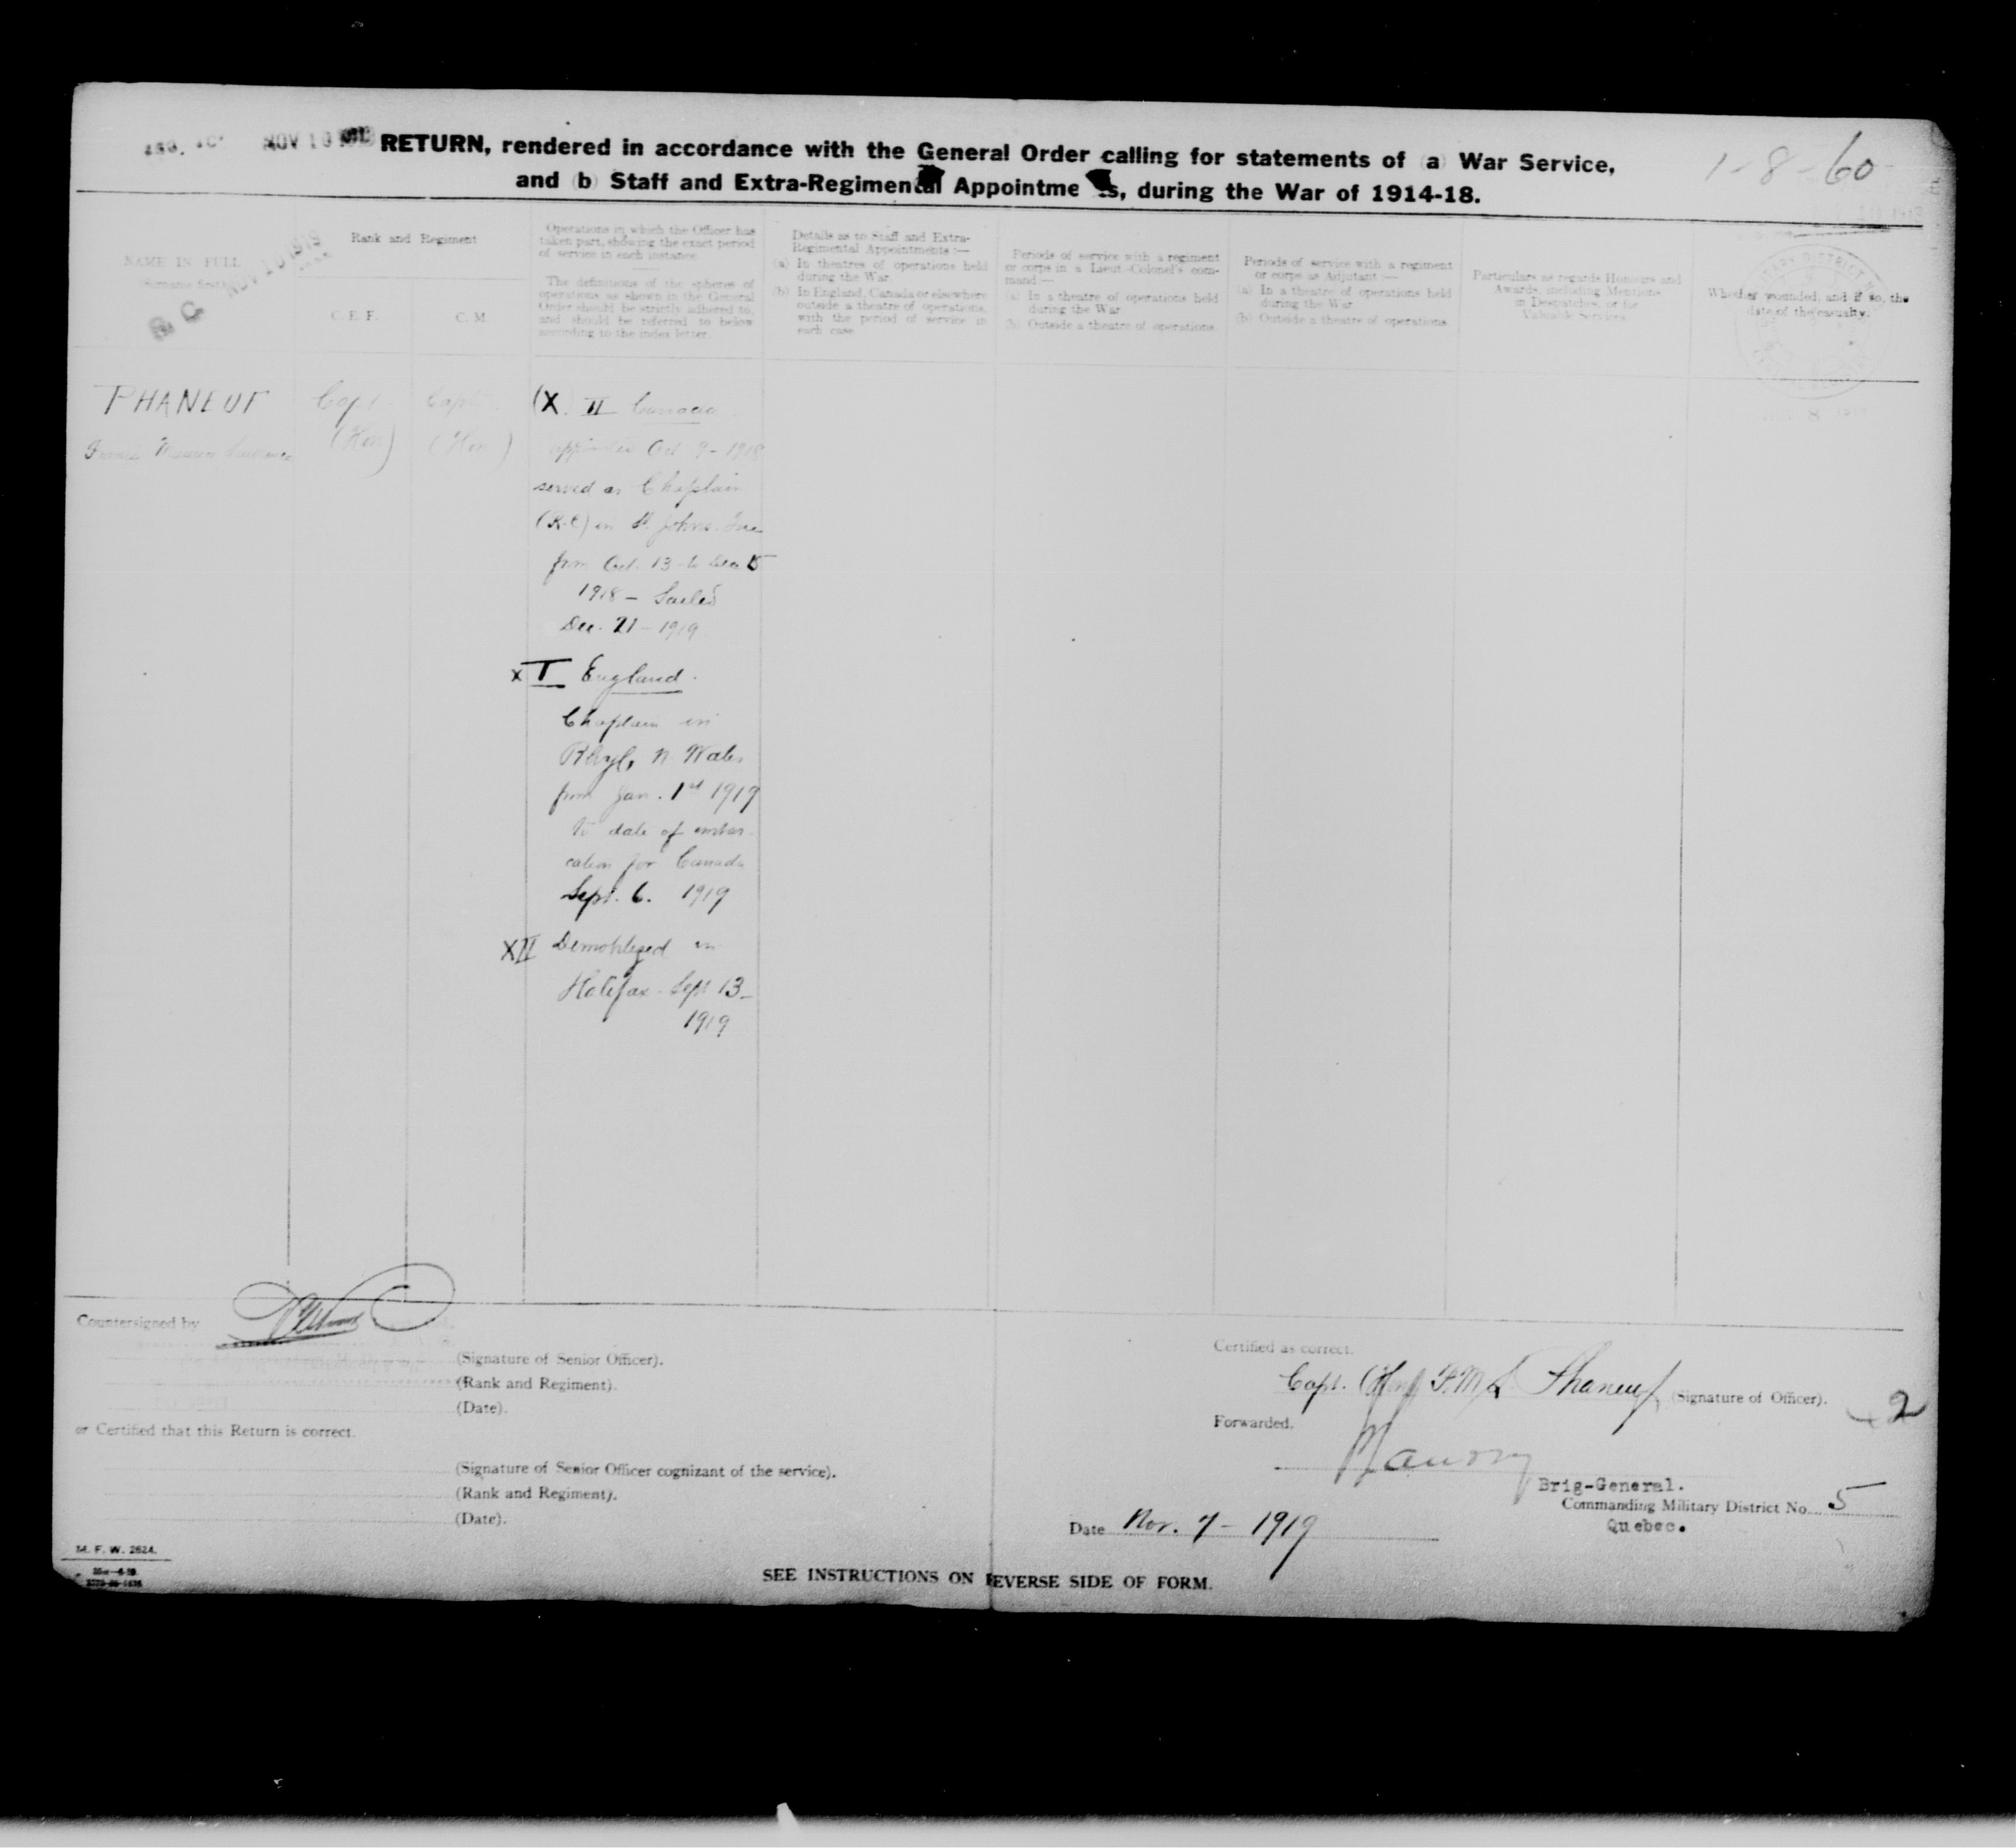 NOV 10 1919
RETURN, rendered in accordance with the General Order calling for statements of (a) War Service,
and (b) Staff and Extra-Regimental Appointme ts, during the War of 1914-18.
1-8-60
NOV 10 1919
R C
NAME IN FULL
(Surname first)
Rank and Regiment
C. E. F.
C. M.
Operations in which the Officer has
taken part, showing the exact period
of service in each instance.
The definitions of the spheres of
operations as shown in the General
Order should be strictly adhered to,
and should be referred to below
according to the index letter.
Details as to Staff and Extra-
Regimental Appointments:—
(a) In theatres of operations held
during the War.
(b) In England, Canada or elsewhere
outside a theatre of operations,
with the period of service in
each case.
Periods of service with a regiment
or corps in a Lieut.-Colonel's com-
mand—
(a) In a theatre of operations held
during the War
(b) Outside a theatre of operations.
Periods of service with a regiment
or corps as Adjutant:—
(a) In a theatre of operations held
during the War
(b) Outside a theatre of operations.
Particulars as regards Honours and
Awards, including Mentions
in Despatches, or for
Valuable Services.
Whether wounded, and if so, the
date of the casualty.
MILITARY DISTRICT
PHANEUF
Francis Maurice
Capt.
(Hon)
Capt.
(Hon)
(X. II Canada
appointed Oct 9- 1918
served as Chaplain
(R.C) in St. Johns. Que
from Oct. 13 to Dec 15
1918 — Sailed
Dec. 21 - 1919
X I England.
Chaplain in
Rhyl, N. Wales
from Jan. 1st 1919
to date of embar-
cation for Canada
Sept. 6. 1919
X II Demobilized in
Halifax - Sept 13-
1919
Countersigned by
(Signature of Senior Officer).
(Rank and Regiment).
(Date).
or Certified that this Return is correct.
(Signature of Senior Officer cognizant of the service).
(Rank and Regiment).
(Date).
Certified as correct.
Capt. (Hon) F.M.L Phaneuf (Signature of Officer).
2
Forwarded.
Brig-General.
Commanding Military District No. 5
Quebec.
Date Nov. 7- 1919
M. F. W. 2624.
SEE INSTRUCTIONS ON REVERSE SIDE OF FORM.